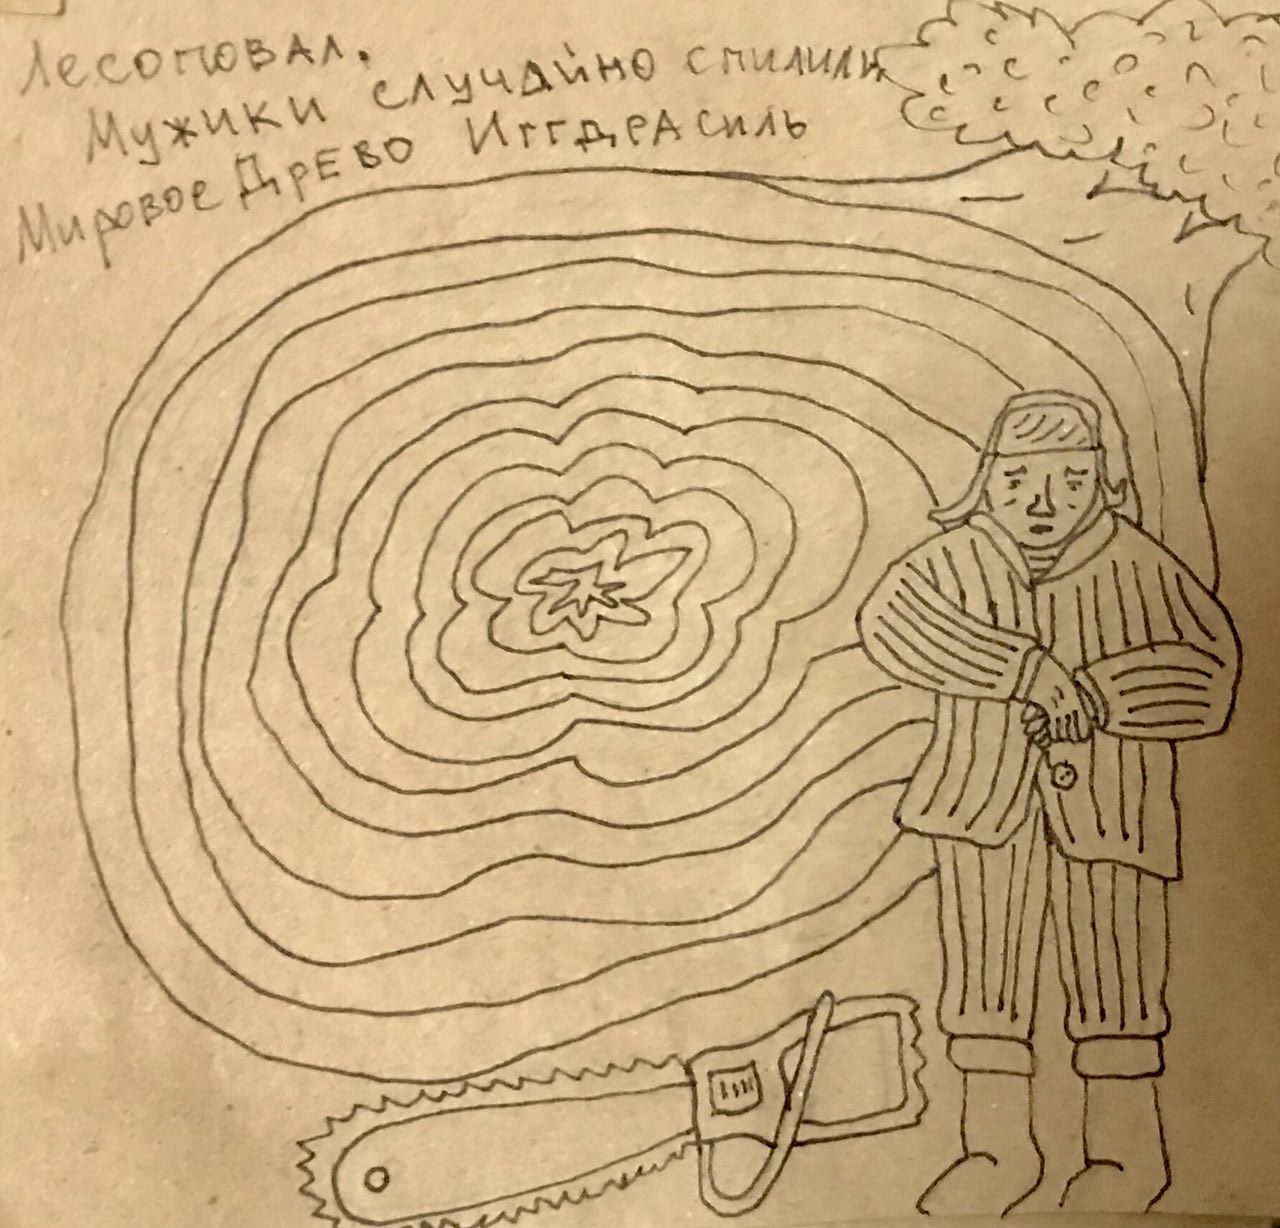 Лесоповал.
Мужики случайно спилили
Мировое Древо Иггдрасиль